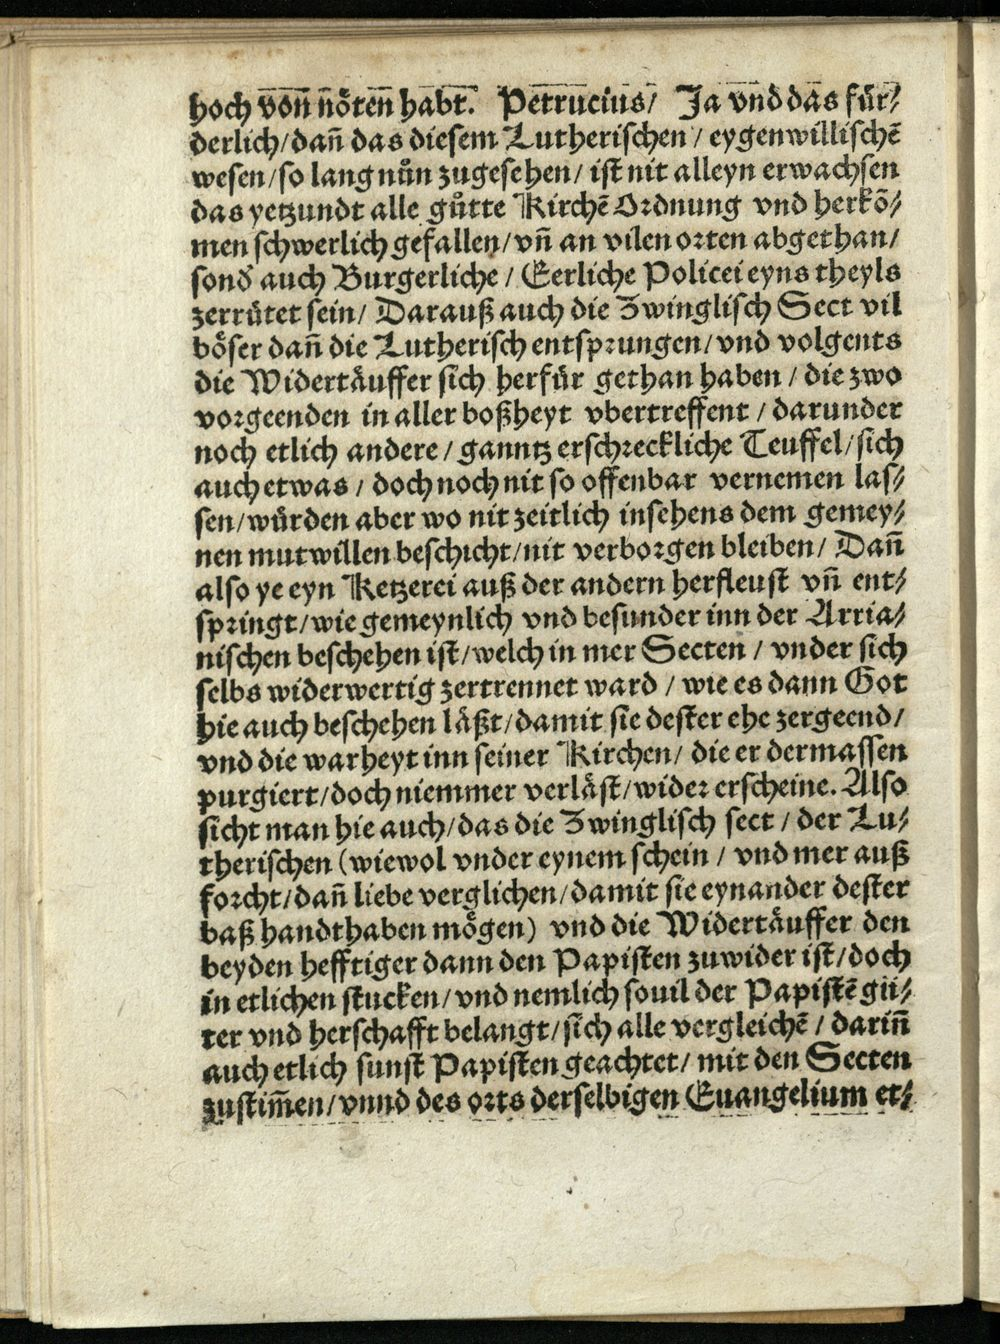 hoch vonn nöten habt. Petrucius/ Ja vnd das für⸗
derlich/dañ das diesem Lutherischen/ eygenwillischẽ
wesen/so lang nůn zugesehen/ ist nit alleyn erwachsen
das yetzundt alle gůtte Kirchẽ Ordnung vnd herkõ⸗
men schwerlich gefallen/vñ an vilen orten abgethan/
sond̕ auch Burgerliche/ Eerliche Policei eyns theyls
zerrütet sein/ Darauß auch die Zwinglisch Sect vil
böser dañ die Lutherisch entsprungen/vnd volgents
die Widertäuffer sich herfür gethan haben/ die zwo
vorgeenden in aller boßheyt vbertreffent/ darunder
noch etlich andere/ ganntz erschreckliche Teuffel/sich
auch etwas/ doch noch nit so offenbar vernemen las⸗
sen/würden aber wo nit zeitlich insehens dem gemey⸗
nen mutwillen beschicht/nit verborgen bleiben/ Dañ
also ye eyn Ketzerei auß der andern herfleust vñ ent⸗
springt/wie gemeynlich vnd besunder inn der Arria⸗
nischen beschehen ist/welch in mer Secten/ vnder sich
selbs widerwertig zertrennet ward/ wie es dann Got
hie auch beschehen läßt/damit sie dester ehe zergeend/
vnd die warheyt inn seiner Kirchen/ die er dermassen
purgiert/doch niemmer verläst/wider erscheine. Also
sicht man hie auch/das die Zwinglisch sect/ der Lu⸗
therischen (wiewol vnder eynem schein/ vnd mer auß
forcht/dañ liebe verglichen/damit sie eynander dester
baß handthaben mögen) vnd die Widertäuffer den
beyden hefftiger dann den Papisten zuwider ist/doch
in etlichen stucken/vnd nemlich souil der Papistẽ gü⸗
ter vnd herschafft belangt/sich alle vergleichẽ/ dariñ
auch etlich sunst Papisten geachtet/ mit den Secten
zustim̃en/vnnd des orts derselbigen Euangelium et⸗